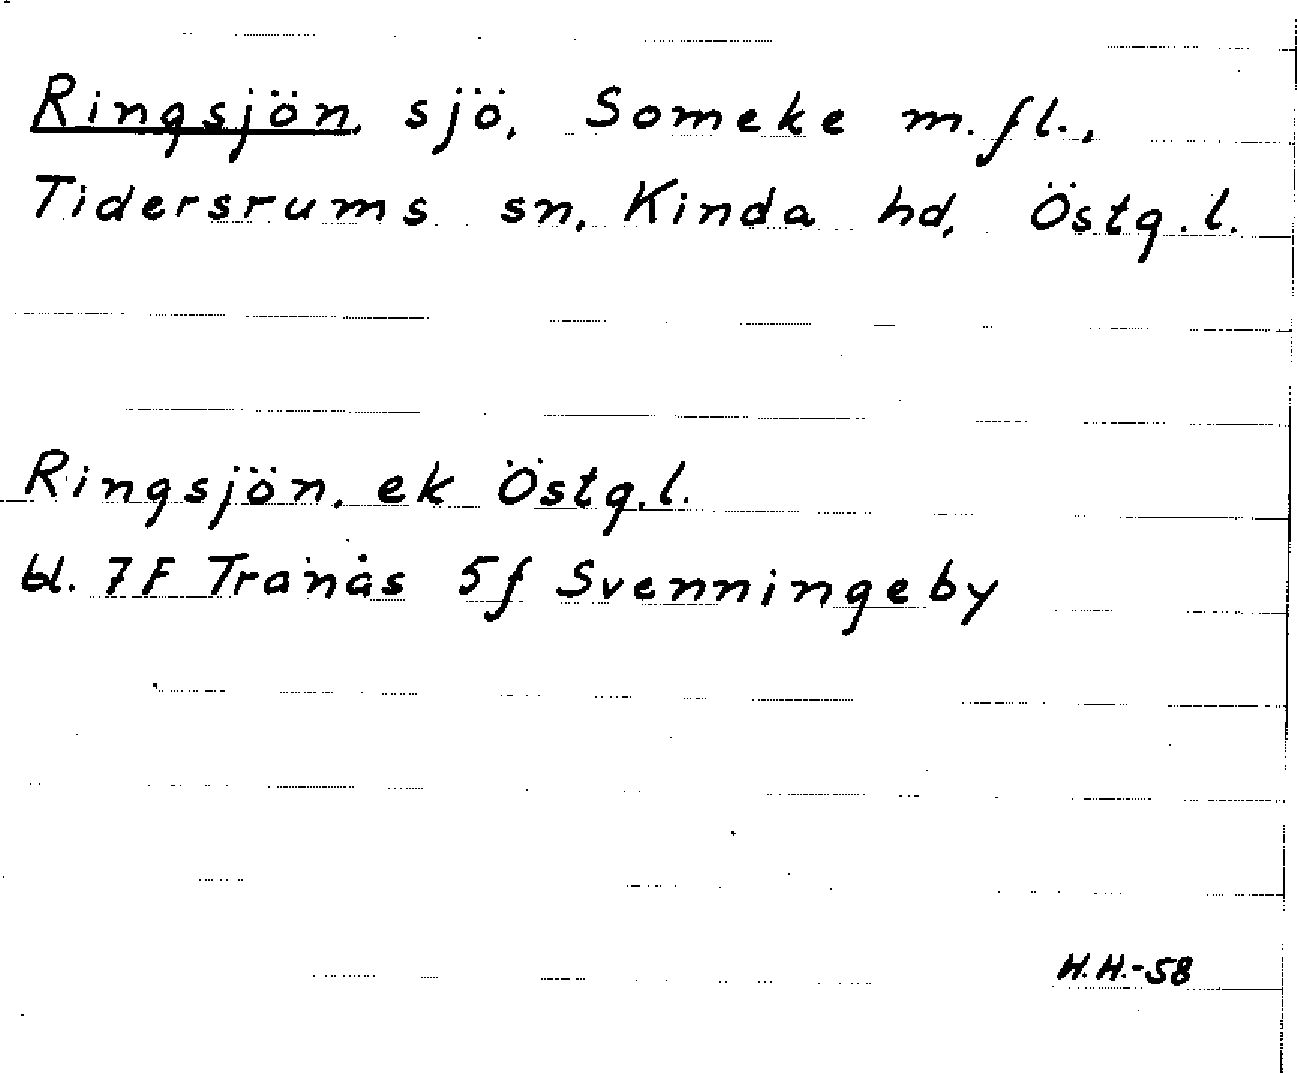 Ringsjön, sjö, Someke m.fl.,
Tidersrums sn, Kinda hd, Östg.l.
Ringsjön, ek Östg.l.
bl. 7F Tranås 5f Svenningeby
H.H.-58